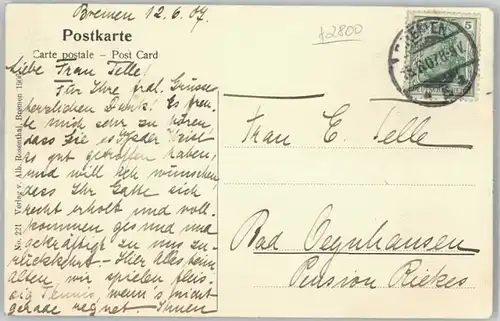 Bremen 12.6.07.
†2800
Postkarte
Carte postale – Post Card
BREMEN
5
Liebe Frau Telle!
Für Ihre frdl. Grüsse
herzlichen Dank! Es freu-
te mich sehr zu hören
dass Sie es
so gut getroffen haben,
und will ich wünschen
dass Ihr Gatte sich
recht erholt und voll-
kommen gesund und
gekräftigt zu uns zu-
rückkehrt – Hier alles beim
alten, wir spielen fleis-
sig Tennis, wenn's nicht
gerade regnet. Ihnen
Frau E. Telle
Bad Oeynhausen
Pension Riekes
No. 221 Verlag v. Alb. Rosenthal, Bremen 190